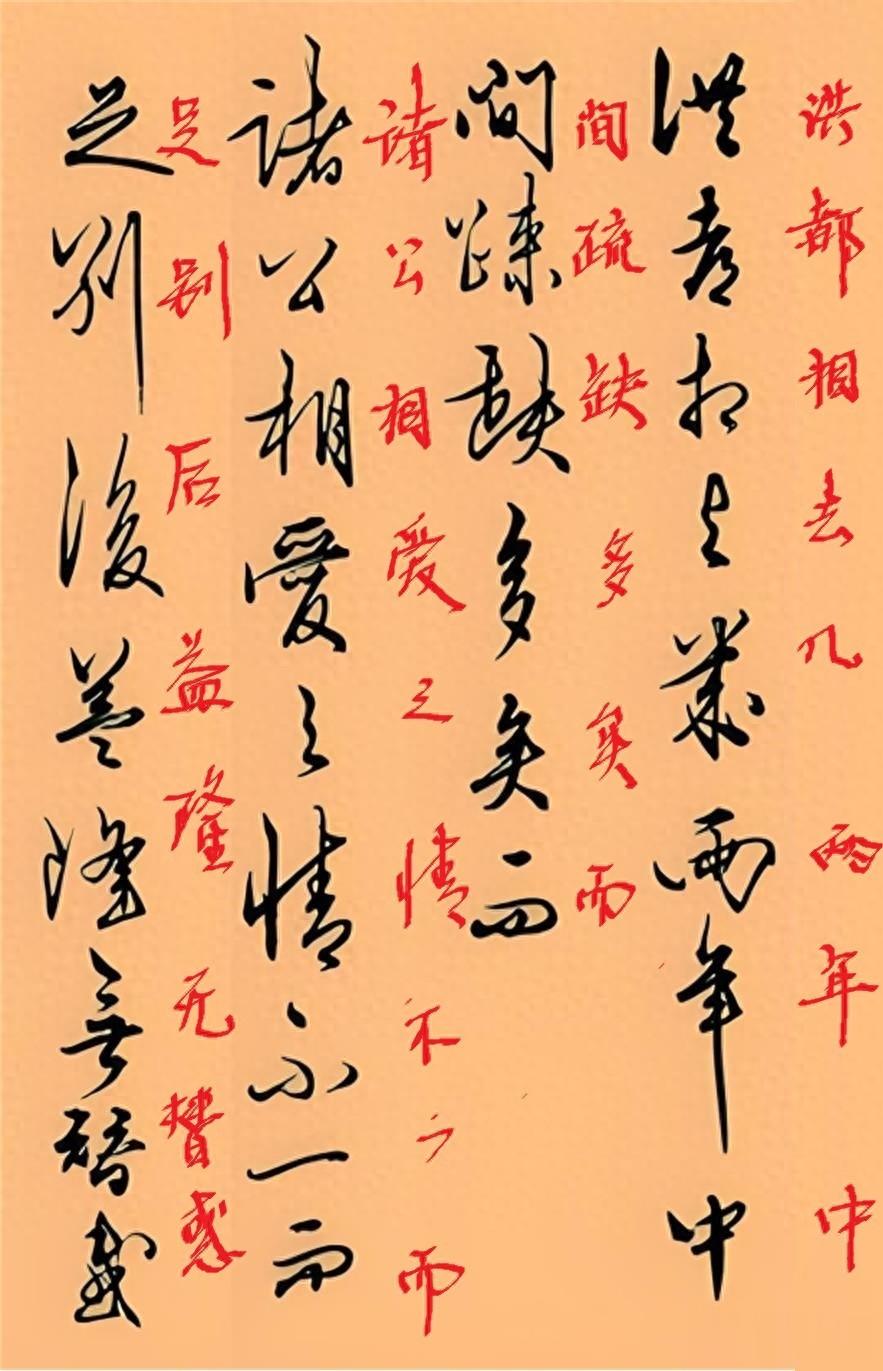 洪都相去几两年中
洪都相去幾兩年中
间疏缺多矣而
間踈缺多矣而
诸公相爱之情不一而
諸公相愛之情不一而
足别后益隆无替感
足別後益隆無替感